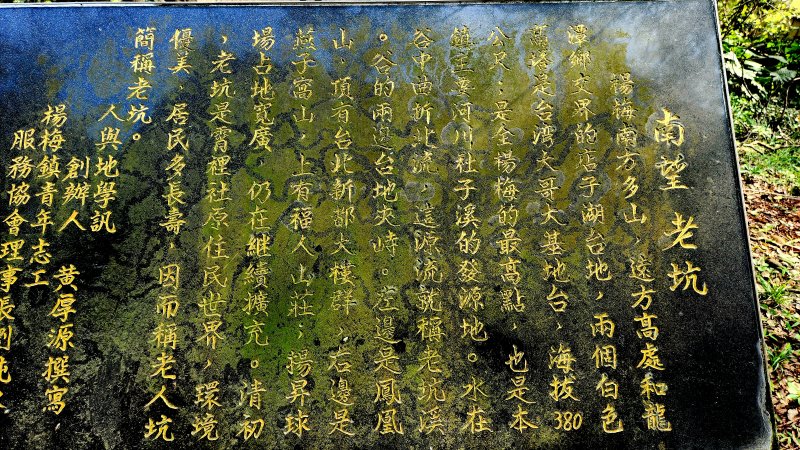 南望老坑
楊梅南方多山，遠方高處和龍
潭鄉交界的店子湖台地，兩個白色
是台湾大哥大基地台，海拔380
公尺；是全楊梅的最高點，也是本
鎮主要河川社子溪的發源地。水在
谷中曲折北流，這源流就稱老坑溪
。谷的兩邊台地夾峙。左邊是鳳凰
山，頂有台北新都大樓群，右邊是
燕子窩山，上有福人山莊；揚昇球
場占地寬廣，仍在繼續擴充。清初
，老坑是霄裡社原住民世界，環境
優美，居民多長壽，因而稱老人坑
簡稱老坑。
人與地學訊
創辦人 黃厚源撰寫
楊梅鎮青年志工
服務協會理事長劉